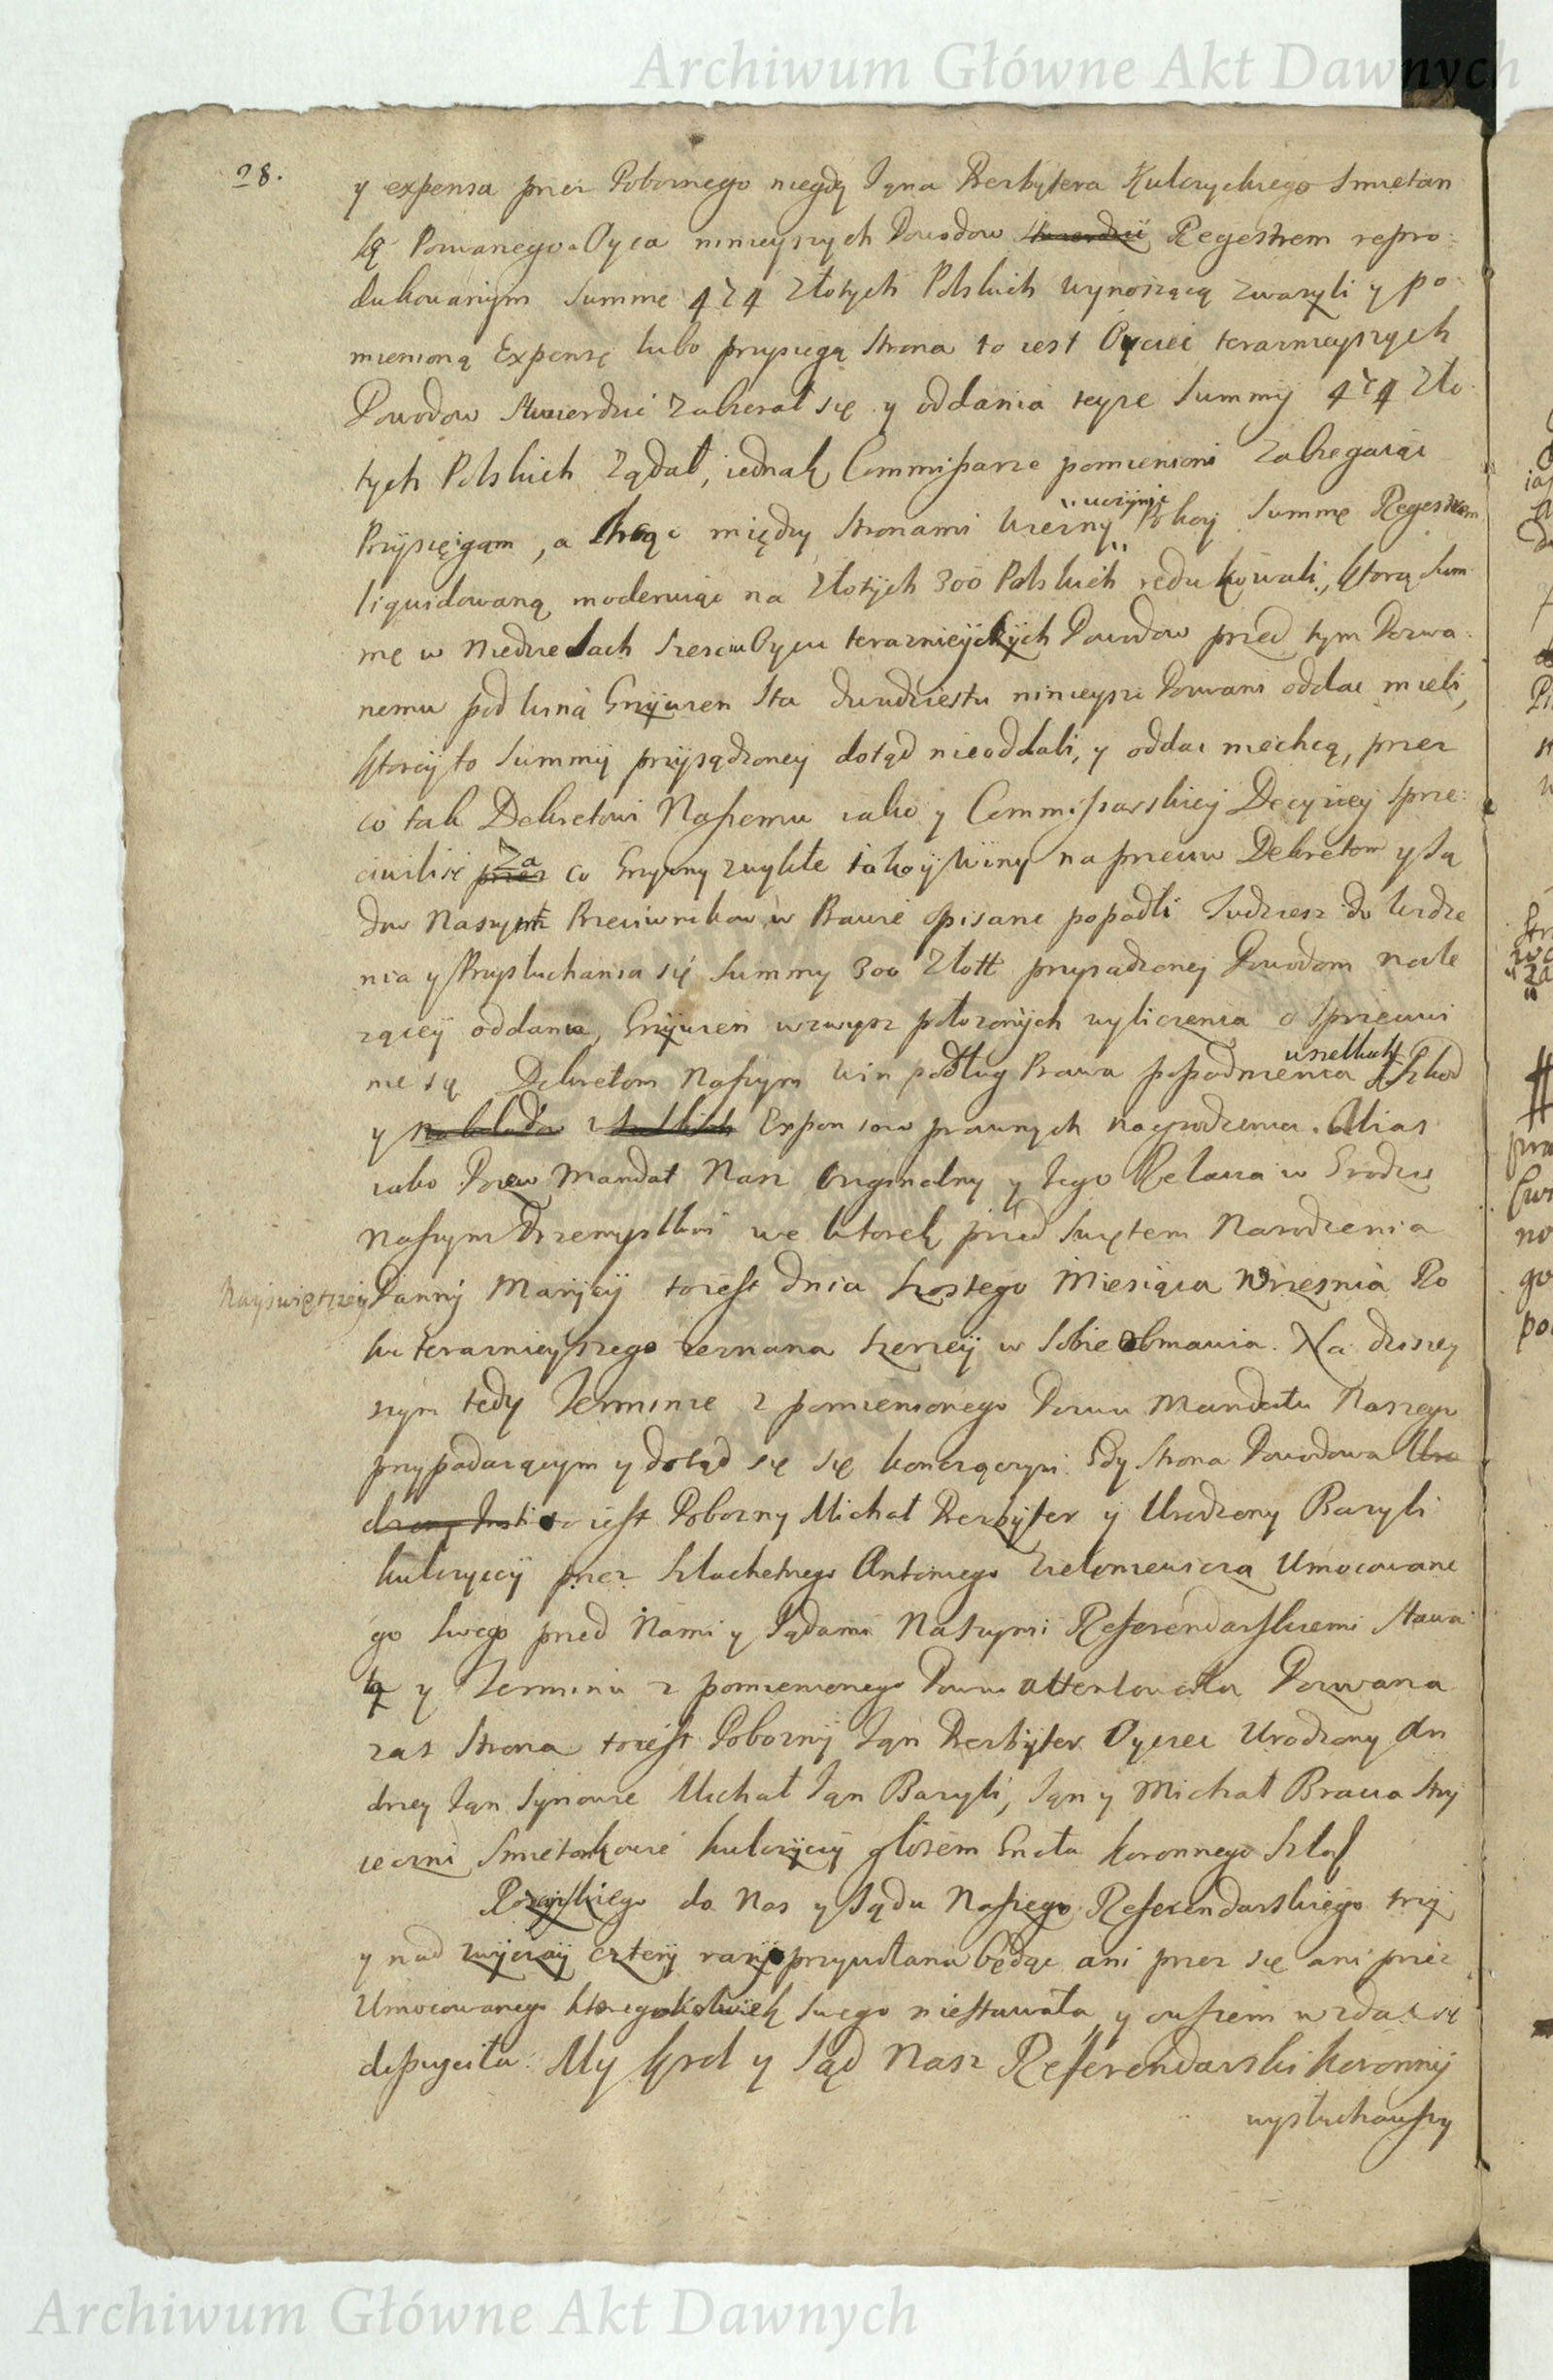 Archiwum Główne Akt Dawnych
28.
y expensa przez Pobożnego niegdy Jana Prezbytera Kulczyckiego Smietan
kę Pozwanego a Oyca ninieyszych Powodow stwierdzić Regestrem repro
dukowanym Summę 474 Złotych Polskich wynoszącą zwazyli y po
mienioną Expensę lubo przysięgą Strona to iest Oyciec teraznieyszych
Powodow Stwierdzić zabierał się y oddania teyże Summy 474 Zło
tych Polskich żądał, iednak Commissarze pomienioni Zabiegaiąc
Przysięgom, a chcąc między Stronami wieczny uczynić Pokoy Summę Regestrem
liquidowaną moderuiąc na Złotych 300 Polskich redukowali, ktorą Sum
mę w Niedzielach Sześciu Oycu teraznieyszych Powodow przed tym Pozwa
nemu pod winą Grzywien Sta dwudziestu ninieysi Pozwani oddać mieli,
ktorey to Summy przysądzoney dotąd nieoddali, y oddać niechcą, przez
co tak Dekretowi Naszemu iako y Commissarskiey Decyzyey sprze
ciwili się przez Za co Grzywny zwykłe iakoy Winy na przeciw Dekretom y Są
dow Naszych Przeciwnikow w Prawie opisane popadli Tudziesz do Widze
nia y Przysłuchania się Summy 300 Złott przysądzoney Powodom nale
żącey oddania, Grzywien wzwysz położonych wyliczenia o Sprzeciwi
nie się Dekretom Naszym Win podług Prawa popadnienia wszelkich Szkod
y nakładow Expensow prawnych nagrodzenia. Alias
iako Pozew Mandat Nasz Originalny y Jego Relacia w Grodzie
Naszym Przemyslkim we Wtorek przed Swiętem Narodzenia
Nayświętszey Panny Maryey toiest dnia szostego Miesiąca Września Ro
ku teraznieyszego zeznana szerzey w Sobie obmawia. Na dzisiey
szym tedy Terminie z pomienionego Pozwu Mandatu Naszego
przypadaiącym y dotąd się się konczącym. Gdy Strona Powodowa Uro
dzony toiest Pobożny Michał Prezbyter y Urodzony Bazyli
Kulczyccy przez Szlachetnego Antoniego Zieloniewicza Umocowane
go Swego przed Nami y Sądami Naszymi Referendarskiemi Stawa
ła y Terminu z pomienionego Pozwu attentowała Pozwana
zas Strona toiest Pobożny Jan Prezbyter Oyciec Urodzony An
drzey Jan Synowie Michał Jan Bazyli, Jan y Michał Bracia Stry
ieczni Smietankowie Kulczyccy głosem Gnoła Koronnego Szlach
do Nas y Sądu Naszego Referendarskiego trzy
y nad zwyczay cztery razy przywołana będąc ani przez się ani przez
Umocowanego ktoregokolwiek swego niestawała y owszem w zdać się
dopuściła. My Krol y Sąd Nasz Referendarski Koronny
wysłuchawszy
Archiwum Główne Akt Dawnych